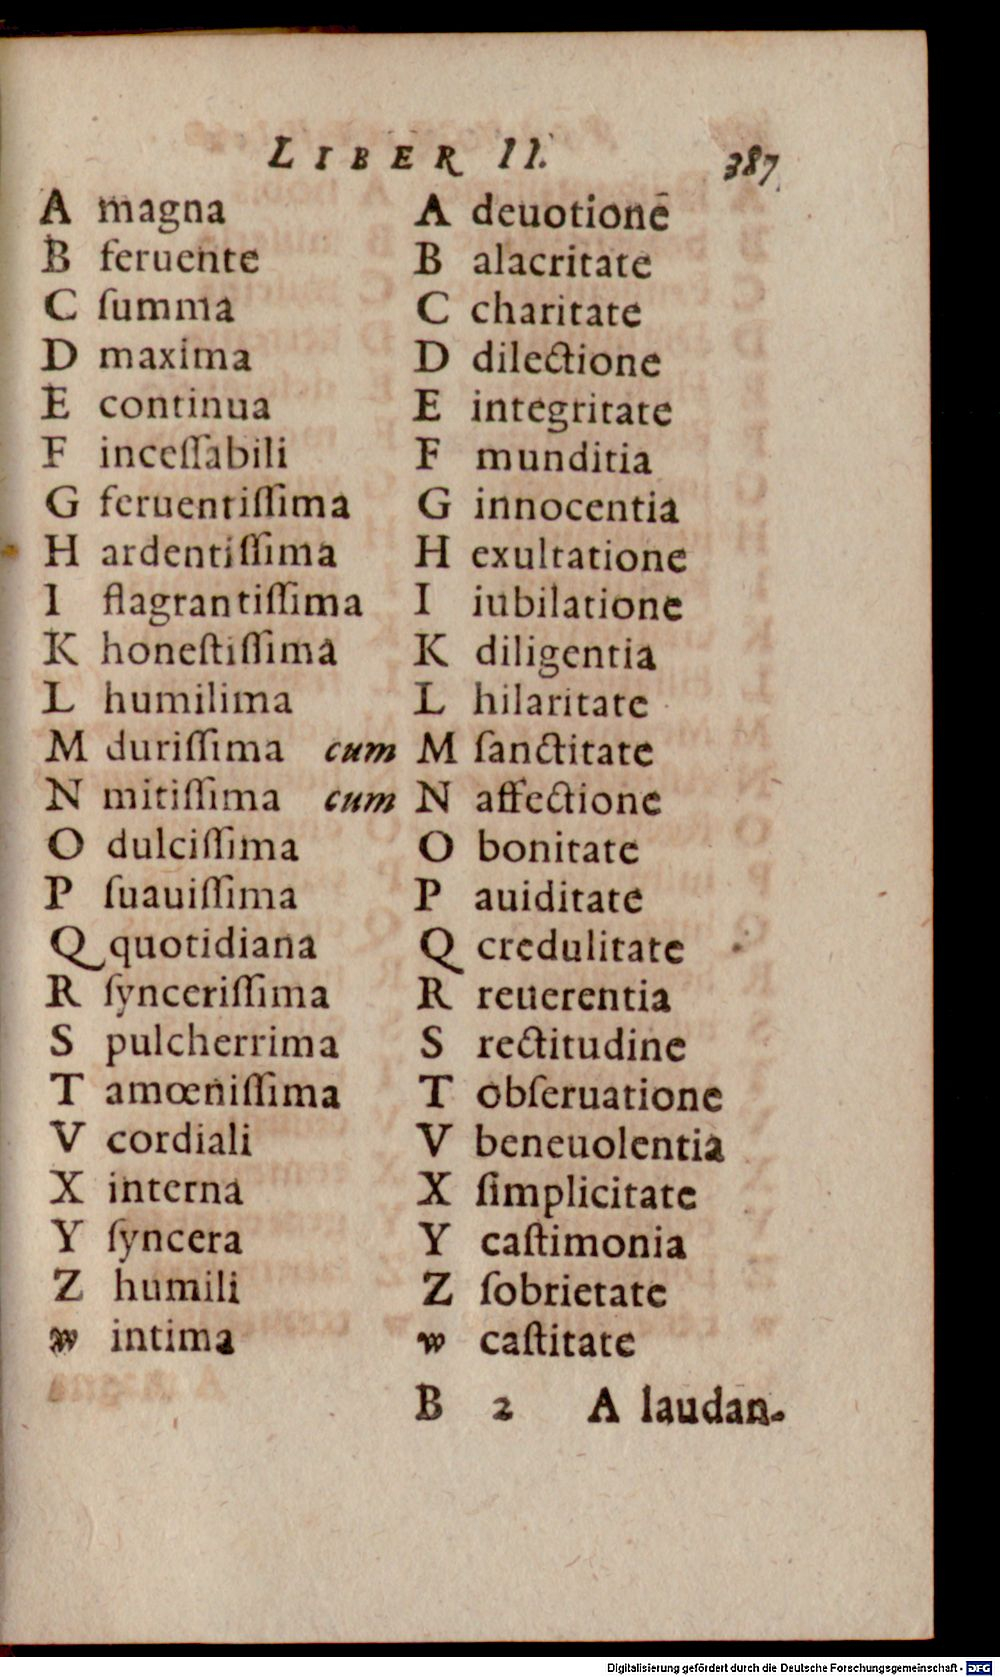 LIBER II. 387
A magna A deuotionē
B feruente B alacritate
C ſumma C charitate
D maxima D dilectione
E continua E integritate
F inceſſabili F munditia
G feruentiſſima G innocentia
H ardentiſſima H exultatione
I flagrantiſſima I iubilatione
K honeſtiſſima K diligentia
L humilima L hilaritate
M duriſſima cum M ſanctitate
N mitiſſima cum N affectione
O dulciſſima O bonitate
P ſuauiſſima P auiditate
Q quotidiana Q credulitate
R ſynceriſſima R reuerentia
S pulcherrima S rectitudine
T amœniſſima T obſeruatione
V cordiali V beneuolentia
X interna X ſimplicitate
Y ſyncera Y caſtimonia
Z humili Z ſobrietate
w intima w caſtitate
B 2 A laudan-
Digitalisierung gefördert durch die Deutsche Forschungsgemeinschaft - DFG